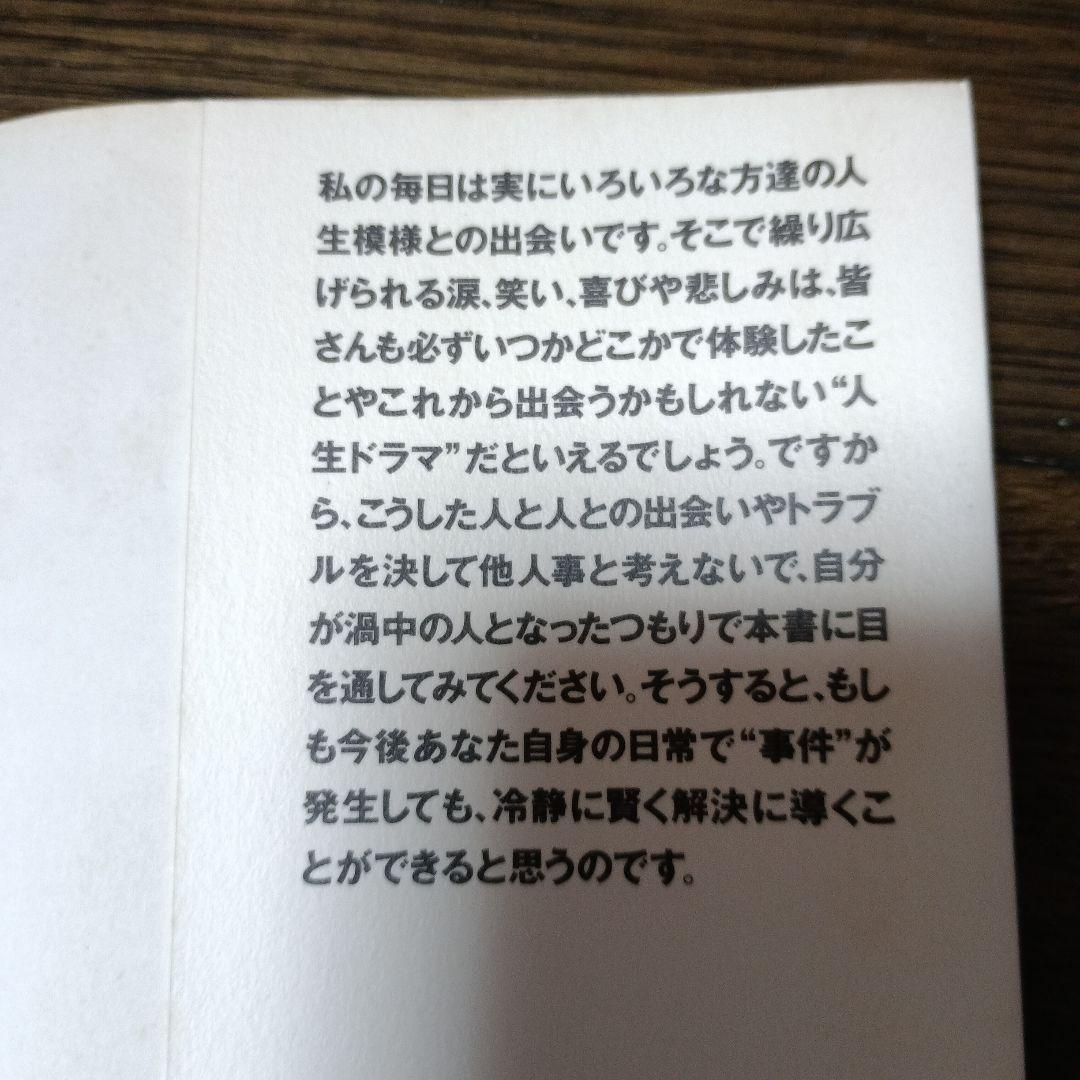 私の毎日は実にいろいろな方達の人
生模様との出会いです。そこで繰り広
げられる涙、笑い、喜びや悲しみは、皆
さんも必ずいつかどこかで体験したこ
とやこれから出会うかもしれない“人
生ドラマ”だといえるでしょう。ですか
ら、こうした人と人との出会いやトラブ
ルを決して他人事と考えないで、自分
が渦中の人となったつもりで本書に目
を通してみてください。そうすると、もし
も今後あなた自身の日常で“事件”が
発生しても、冷静に賢く解決に導くこ
とができると思うのです。